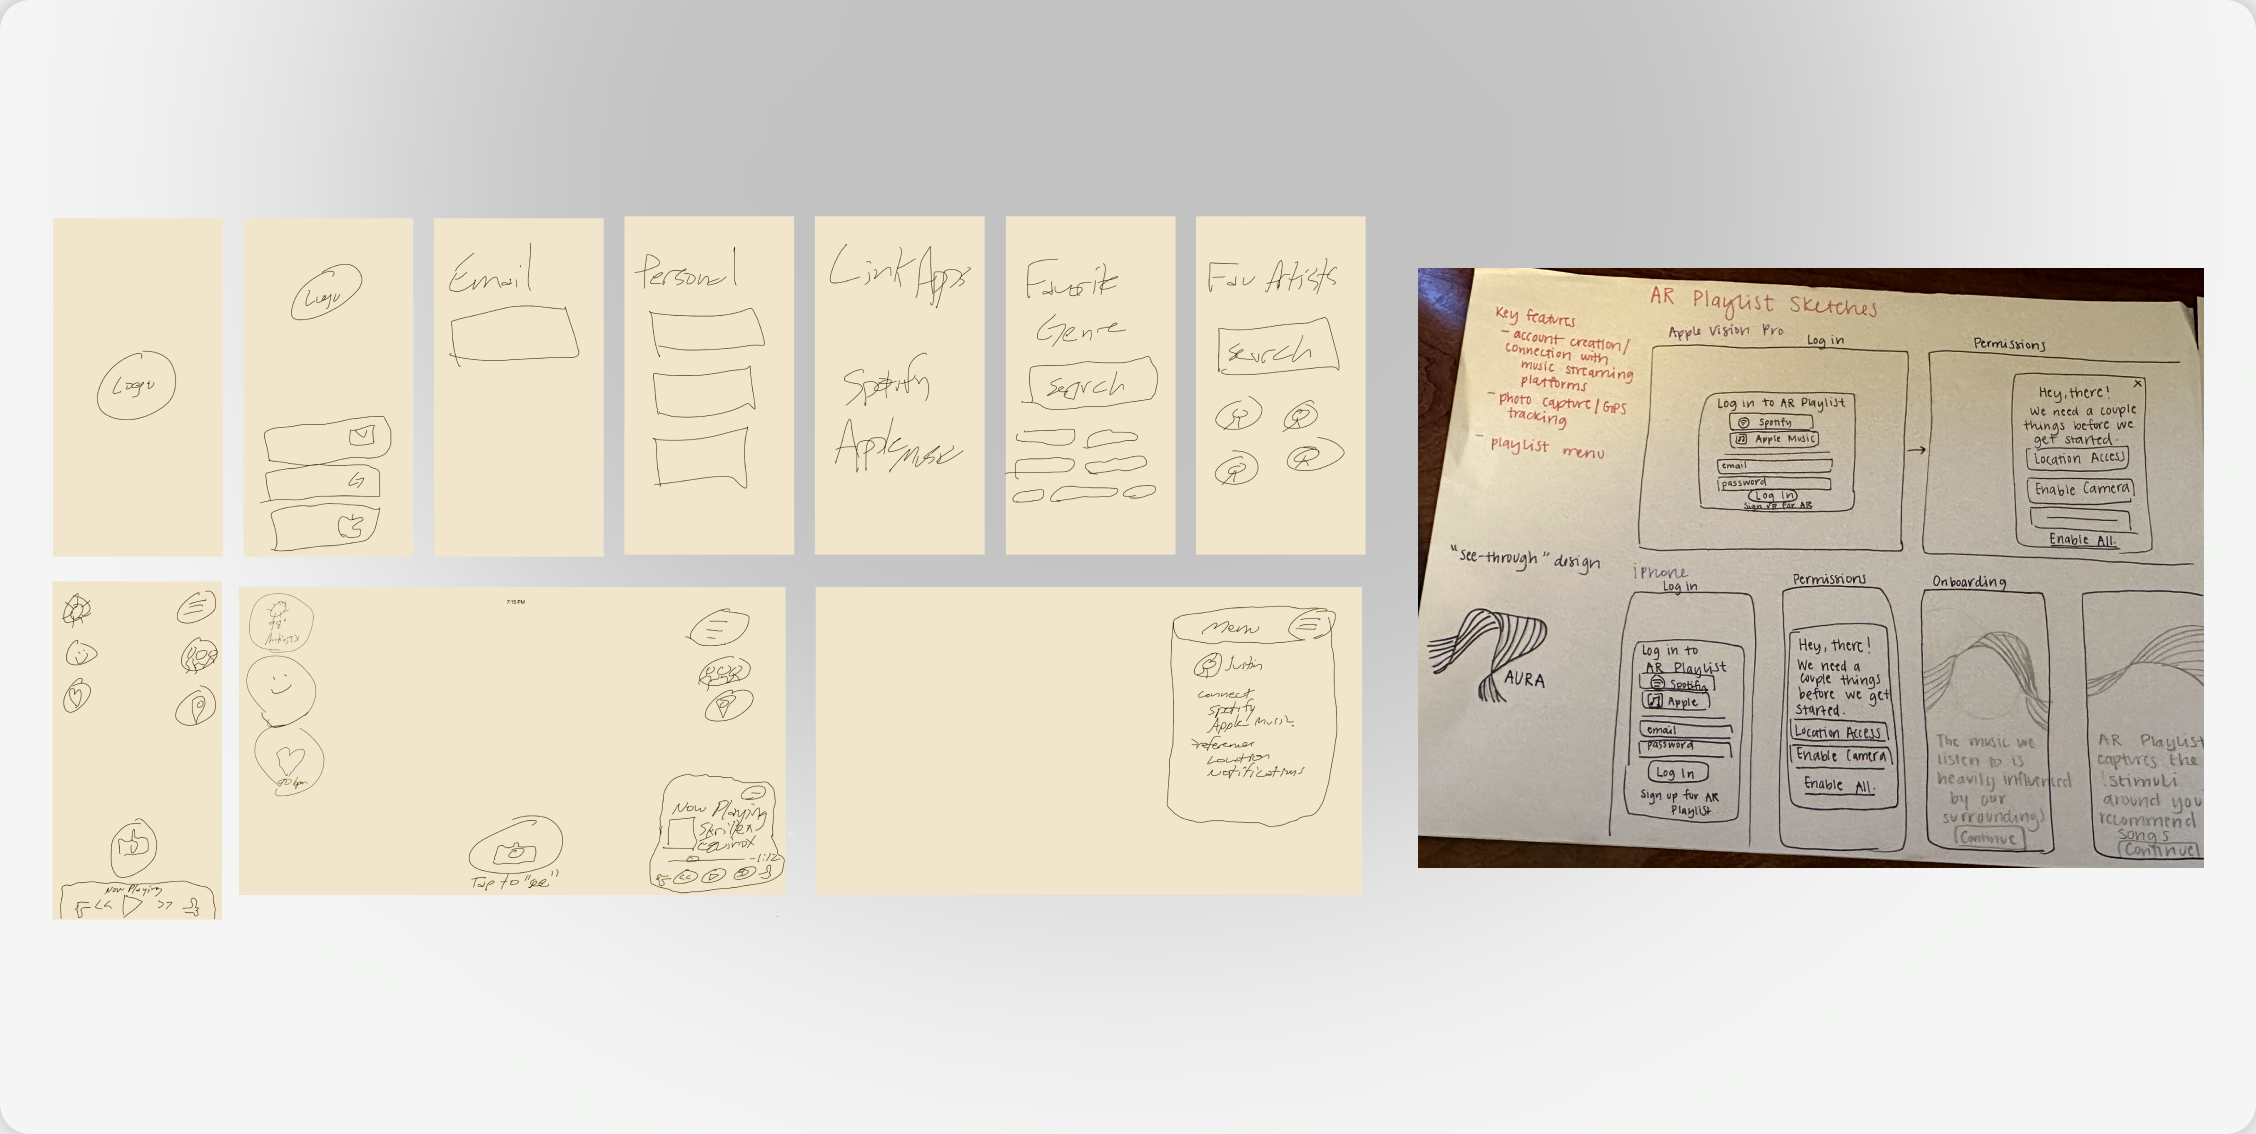 Logo
Logo
Email
Personal
Link Apps
Spotify
Apple Music
Favorite
Genre
Search
Fav Artists
Search
Now Playing
<<
>>
98°
Artists
90 bpm
7:15 PM
Tap to "see"
Now Playing
Skrillex
Equinox
-1:12
Menu
Justin
Connect
Spotify
Apple Music
Location
Notifications
AR Playlist Sketches
Key features
- account creation/
connection with
music streaming
platforms
- photo capture/GPS
tracking
- playlist menu
Apple Vision Pro
Log in
Log in to AR Playlist
Spotify
Apple Music
email
password
Log In
Sign up for AR
Permissions
Hey, there!
X
We need a couple
things before we
get started.
Location Access
Enable Camera
Enable All.
"see-through" design
AURA
iphone
Log in
Log in to
AR Playlist
Spotify
Apple
email
password
Log In
Sign up for AR
Playlist
Permissions
Hey, there!
We need a
couple things
before we get
started.
Location Access
Enable Camera
Enable All.
Onboarding
The music we
listen to is
heavily influenced
by our
surroundings
Continue
AR Playlist
captures the
stimuli
around you
recommend
songs
Continue